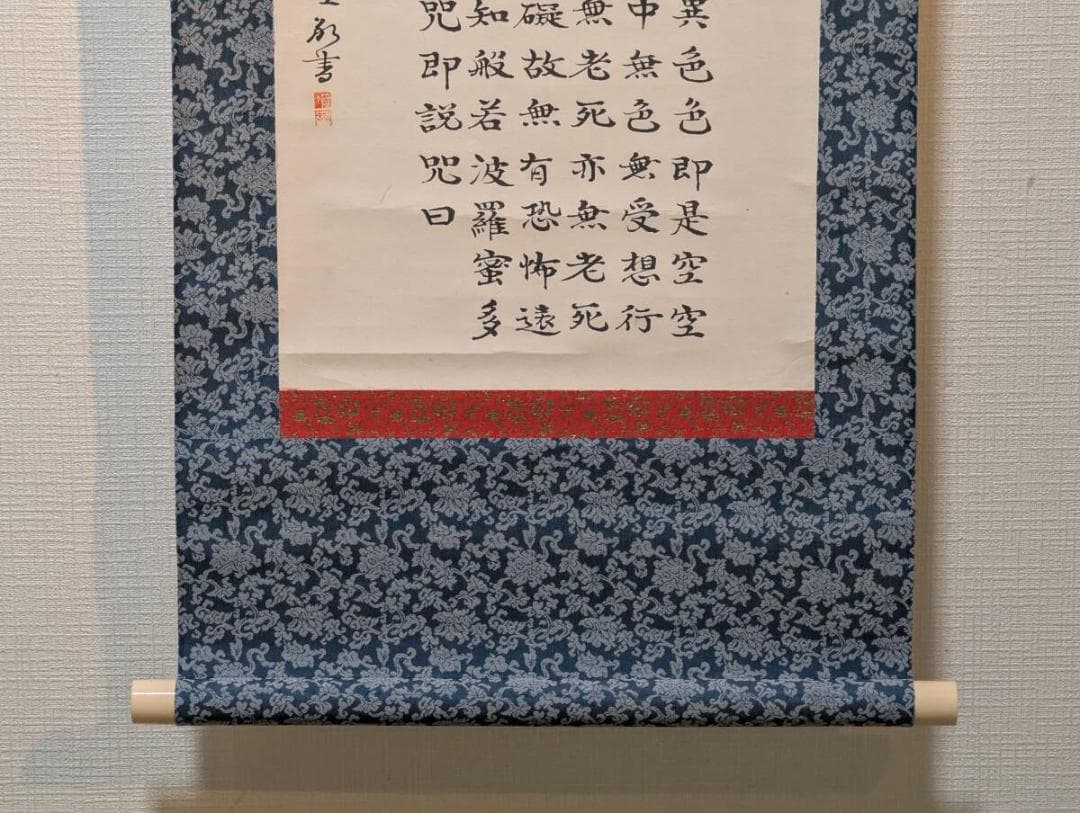 異色色即是空空
中無色無受想行
無老死亦無老死
礙故無有恐怖遠
知般若波羅蜜多
咒即説咒曰
書